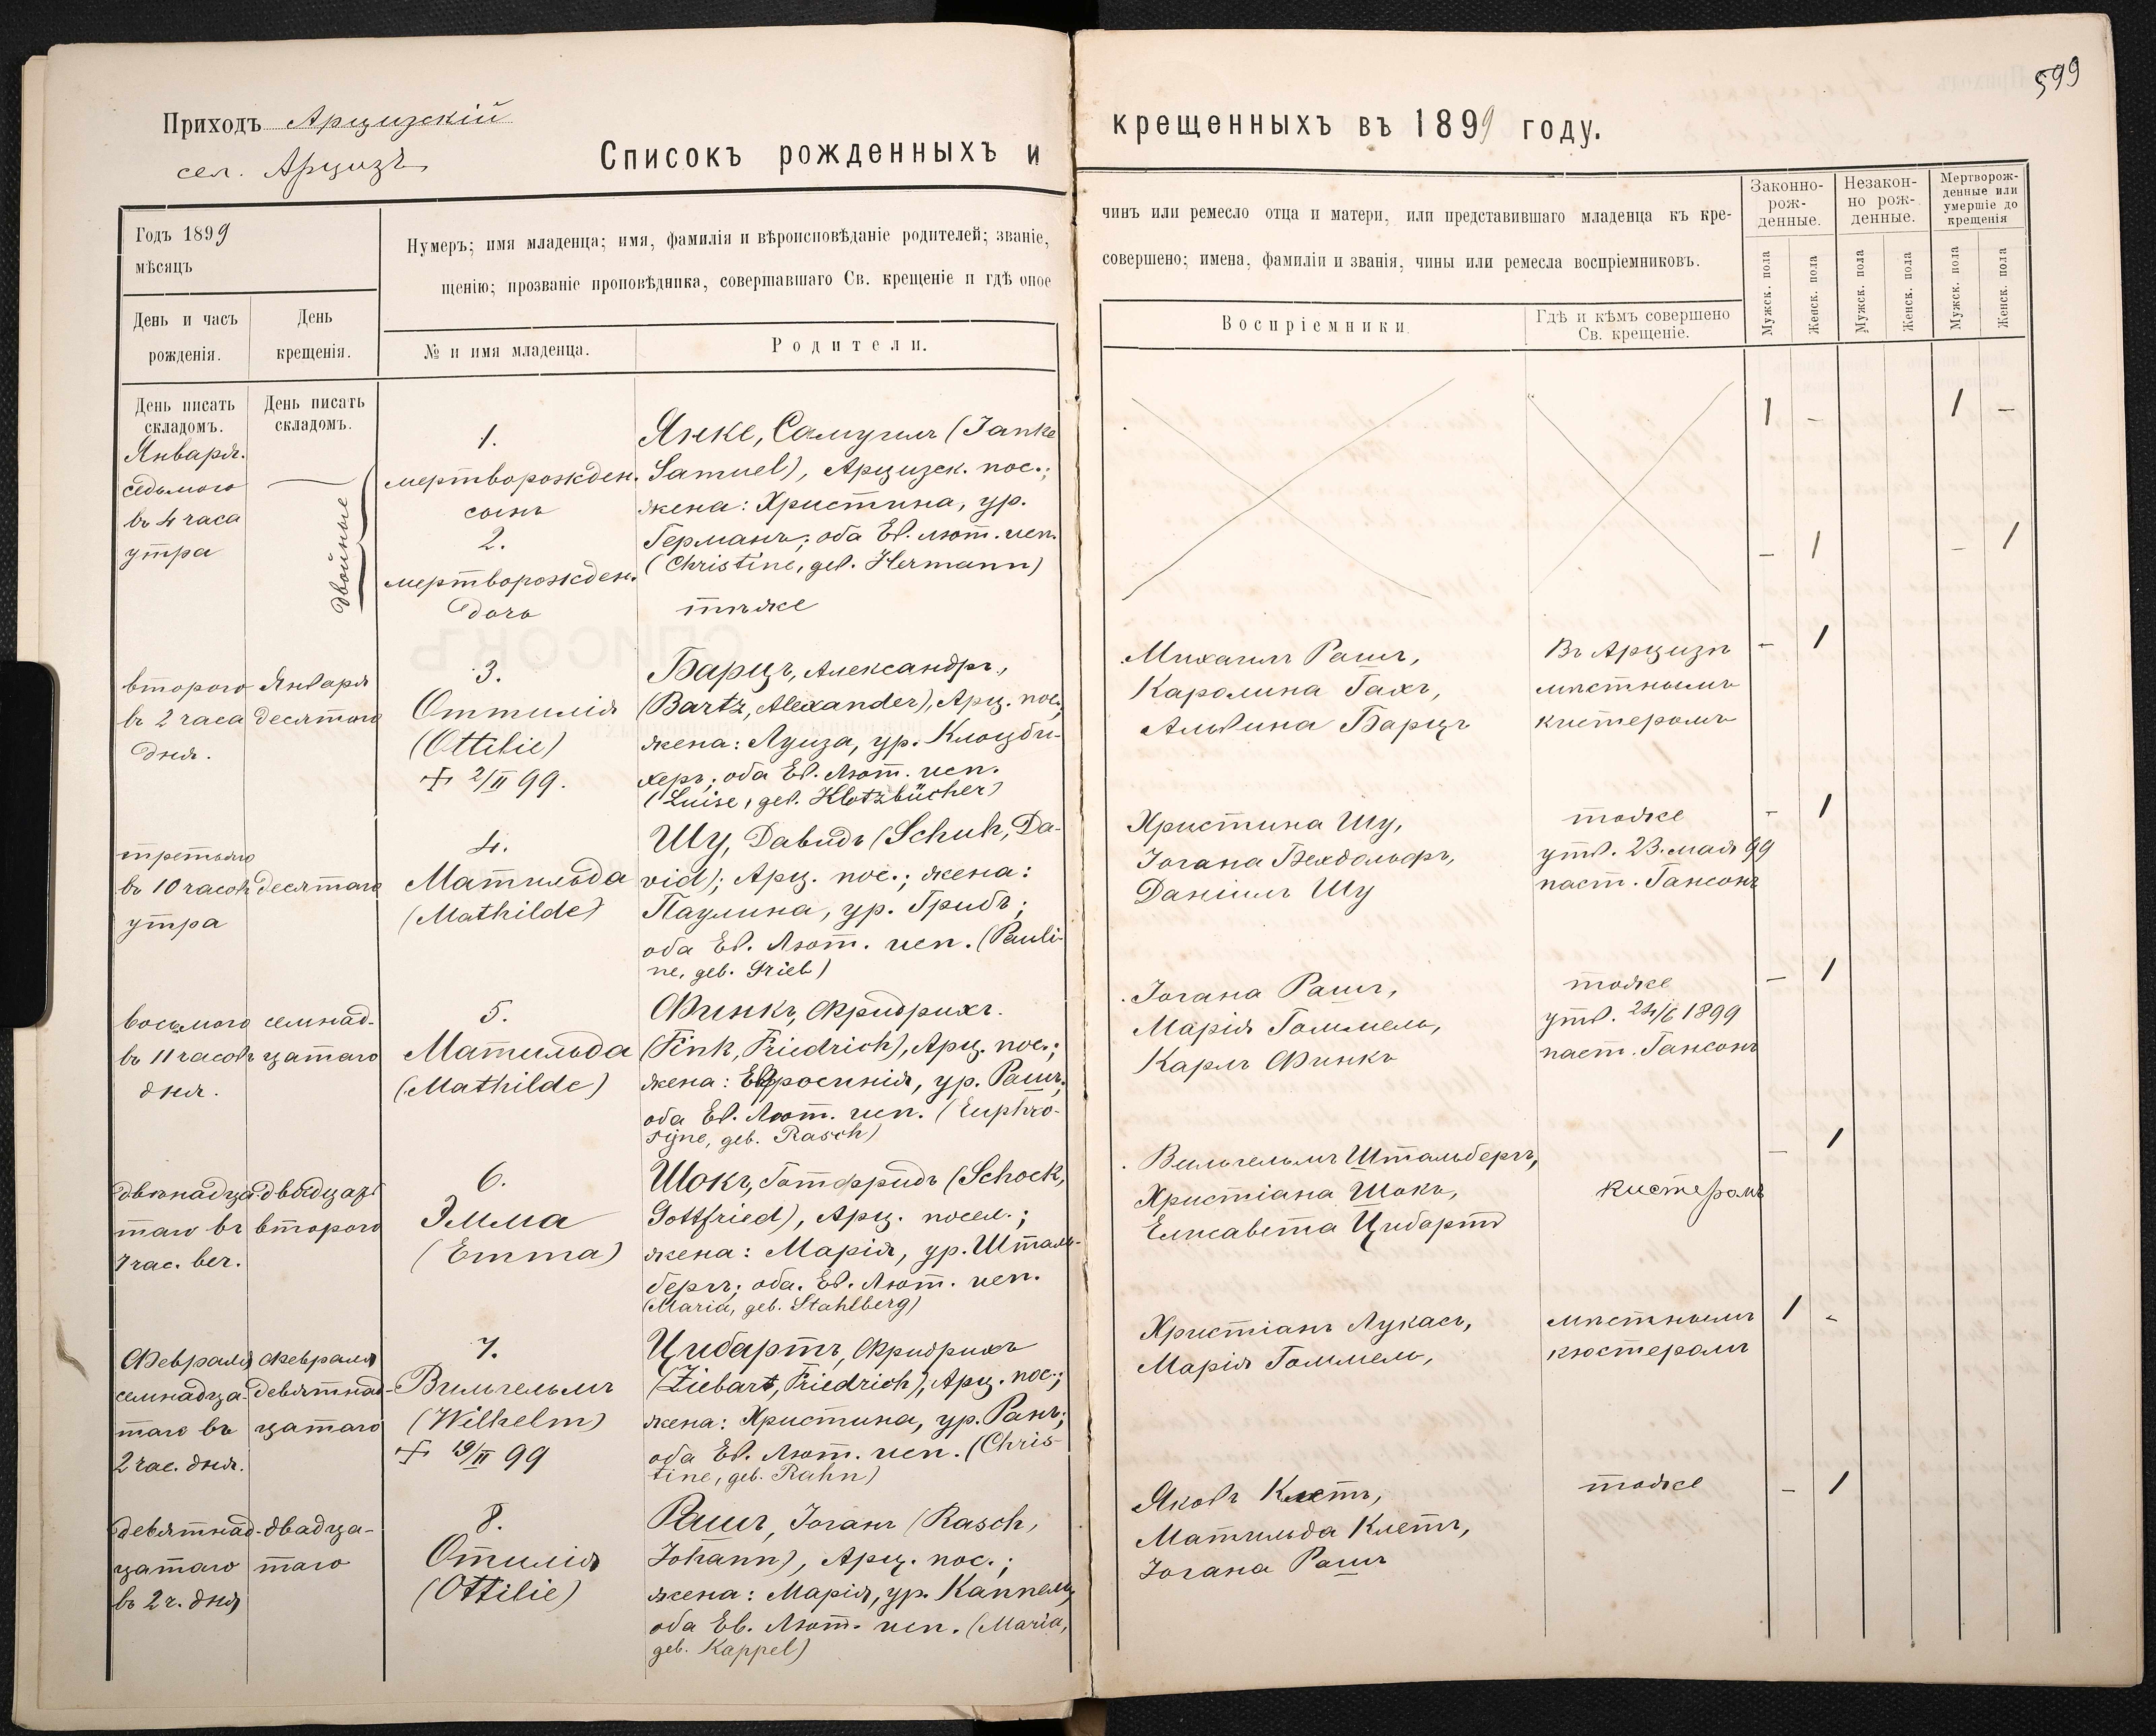 599
Приходъ Арцизскій
сел. Арцизъ
Списокъ рожденныхъ и
крещенныхъ въ 1899 году.
Годъ 1899
мѣсяцъ
День и часъ
рожденія.
День
крещенія.
Нумеръ; имя младенца; имя, фамилія и вѣроисповѣданіе родителей; званіе,
щенію; прозваніе проповѣдника, совершавшаго Св. крещеніе и гдѣ оное
№ и имя младенца.
Родители.
чинъ или ремесло отца и матери, или представившаго младенца къ кре-
совершено; имена, фамиліи и званія, чины или ремесла воспріемниковъ.
Воспріемники.
Гдѣ и кѣмъ совершено
Св. крещеніе.
Законно-
рож-
денные.
Незакон-
но рож-
денные.
Мертворож-
денные или
умершіе до
крещенія
Мужск. пола
Женск. пола
Мужск. пола
Женск. пола
Мужск. пола
Женск. пола
День писать
складомъ.
День писать
складомъ.
Января.
седьмого
въ 4 часа
утра
—
двойные
1.
мертворожден.
сынъ
2.
мертворожден.
дочь
Янке, Самуилъ (Janke
Samuel), Арцизск. пос.;
жена: Христина, ур.
Германъ; оба Ев. лют. исп.
(Christine, geb. Hermann)
тѣже
1 - 1 -
- 1 - 1
второго
въ 2 часа
дня.
Января
десятого
3.
Оттилія
(Ottilie)
+ 2/II 99.
Барцъ, Александръ,
(Bartz, Alexander), Арц. пос.;
жена: Луиза, ур. Клоцби-
херъ; оба Ев. Лют. исп.
(Luise, geb. Klotzbücher)
Михаилъ Рашъ,
Каролина Гахъ,
Альвина Барцъ
Въ Арцизѣ
мѣстнымъ
кистеромъ
- 1
третьяго
въ 10 часовъ
утра
десятаго
4.
Матильда
(Mathilde)
Шу, Давидъ (Schuh, Da-
vid); Арц. пос.; жена:
Паулина, ур. Грибъ;
оба Ев. Лют. исп. (Pauli-
ne, geb. Grieb)
Христина Шу,
Іогана Бехдольфъ,
Даніилъ Шу
тоже
утв. 23. мая 99
паст. Гансонъ
- 1
восьмого
въ 11 часовъ
дня.
семнад-
цатаго
5.
Матильда
(Mathilde)
Финкъ, Фридрихъ.
(Fink, Friedrich), Арц. пос.;
жена: Евфросинія, ур. Рашъ;
оба Ев. Лют. исп. (Euphro-
syne, geb. Rasch)
Іогана Рашъ,
Марія Гоммель,
Карлъ Финкъ
тоже
утв. 24/6 1899
паст. Гансонъ
- 1
двѣнадца-
таго въ
7 час. веч.
двадцать
второго
6.
Эмма
(Emma)
Шокъ, Готфридъ (Schock,
Gottfried), Арц. посел.;
жена: Марія, ур. Шталь-
бергъ; оба. Ев. Лют. исп.
(Maria, geb. Stahlberg)
Вильгельмъ Штальбергъ,
Христіана Шокъ,
Елисавета Цибартъ
кистеромъ
- 1
Февраля
семнадца-
таго въ
2 час. дня.
Февраля
девятнад-
цатаго
7.
Вильгельмъ
(Wilhelm)
+ 19/II 99
Цибартъ, Фридрихъ
(Ziebart, Friedrich), Арц. пос.;
жена: Христина, ур. Ранъ;
оба Ев. Лют. исп. (Chris-
tine, geb. Rahn)
Христіанъ Лукасъ,
Марія Гоммель,
мѣстнымъ
кюстеромъ
1 -
девятнад-
цатаго
въ 2 ч. дня
двадца-
таго
8.
Отилія
(Ottilie)
Рашъ, Іоганъ (Rasch,
Johann), Арц. пос.;
жена: Марія, ур. Каппель;
оба Ев. Лют. исп. (Maria,
geb. Kappel)
Яковъ Клетъ,
Матильда Клетъ,
Іогана Рашъ
тоже
- 1